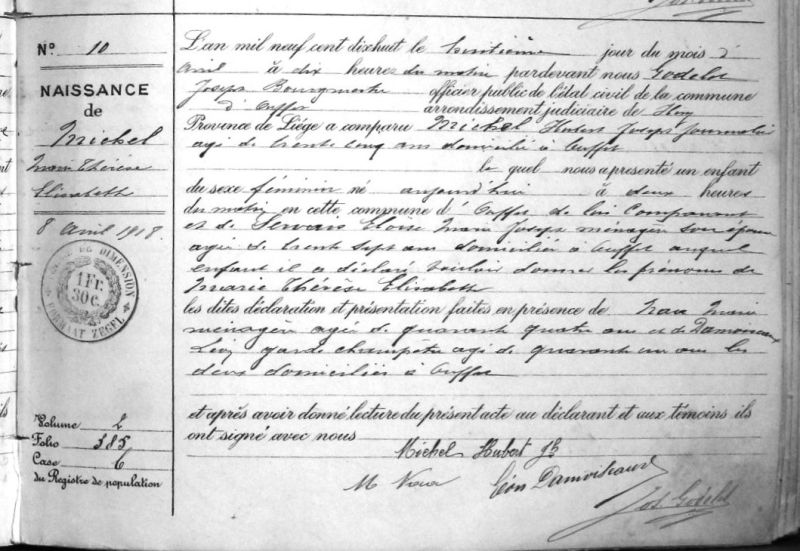 N° 10
NAISSANCE
de
Michel
Marie Thérèse
Elisabeth
8 Avril 1918.
DE DIMENSION
1 Fr.
30 c.
FORMAAT ZEGEL
Volume 2
Folio 385
Case 6
du Registre de population
L'an mil neuf cent dixhuit le huitième jour du mois d'
avril à dix heures du matin pardevant nous Godelet
Joseph Bourgmestre officier public de l'état civil de la commune
d'Ouffet arrondissement judiciaire de Huy
Province de Liége a comparu Michel Hubert Joseph Journalier
agé de trente cinq ans domicilié à Ouffet
le quel nous a présenté un enfant
du sexe féminin né aujourd'hui à deux heures
du matin en cette commune d'Ouffet de lui Comparant
et de Servais Eloïse Marie Joseph ménagère son épouse
agée de trente sept ans domiciliés à Ouffet auquel
enfant il a déclaré vouloir donner les prénoms de
Marie Thérèse Elisabeth
les dites déclaration et présentation faites en présence de Marie
ménagère agée de quarante quatre ans et de Damoiseaux
Léon garde champêtre agé de quarante un ans les
deux domiciliés à Ouffet
et après avoir donné lecture du présent acte au déclarant et aux témoins ils
ont signé avec nous
Michel Hubert Jh
M Léon Damoiseaux
Jos. Godelet